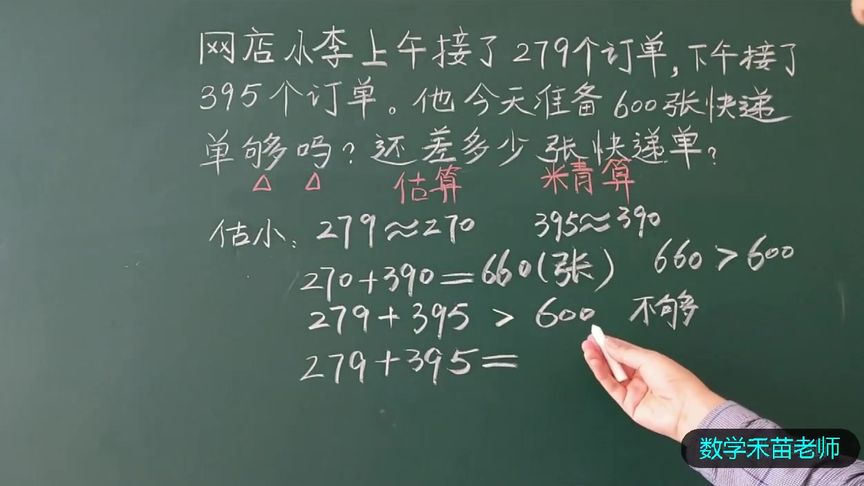 网店小李上午接了279个订单,下午接了
395个订单。他今天准备600张快递
单够吗?还差多少张快递单?
△ △ 估算 精算
估小: 279≈270 395≈390
270+390=660(张) 660>600
279+395 > 600 不够
279+395=
数学禾苗老师